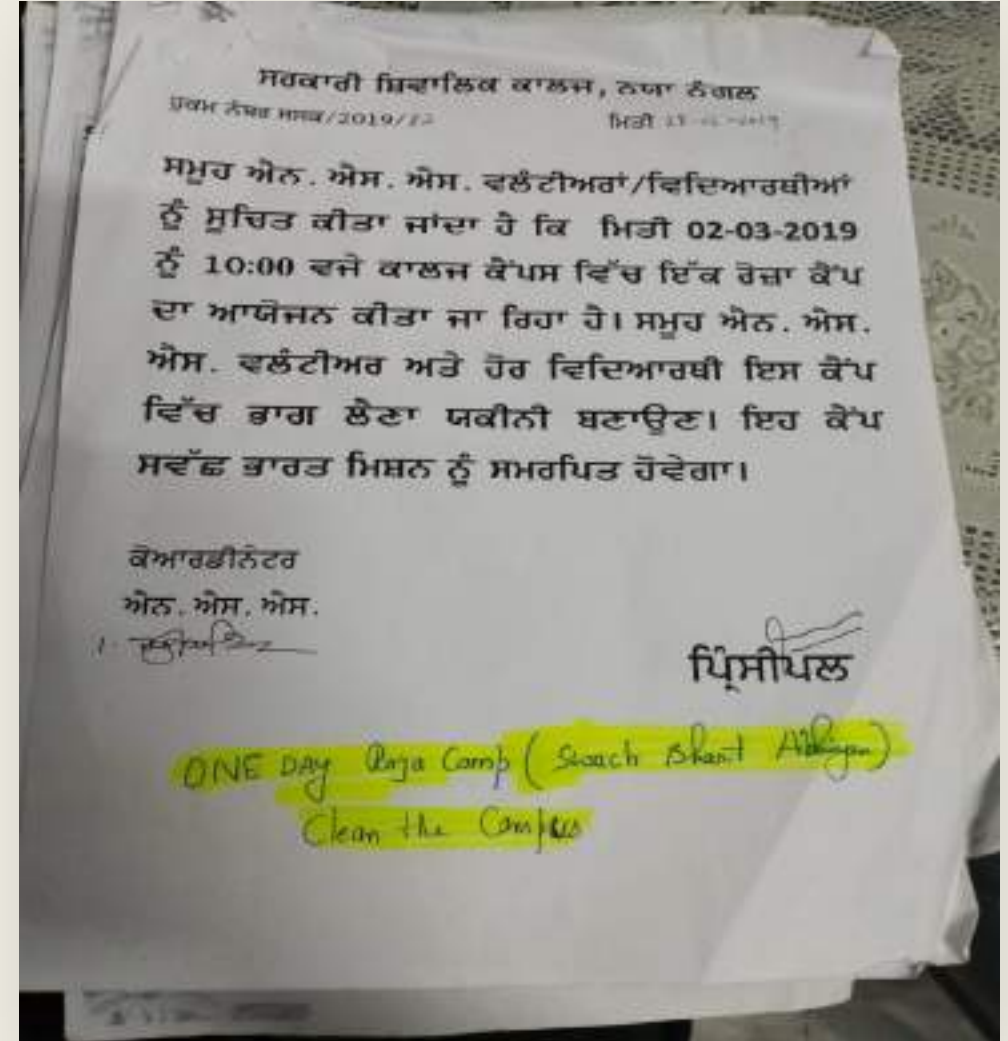 ਸਰਕਾਰੀ ਸ਼ਿਵਾਲਿਕ ਕਾਲਜ, ਨਯਾ ਨੰਗਲ
ਹੁਕਮ ਨੰਬਰ ਸਸਕ/2019/ ਮਿਤੀ
ਸਮੂਹ ਐਨ. ਐਸ. ਐਸ. ਵਲੰਟੀਅਰਾਂ/ਵਿਦਿਆਰਥੀਆਂ
ਨੂੰ ਸੂਚਿਤ ਕੀਤਾ ਜਾਂਦਾ ਹੈ ਕਿ ਮਿਤੀ 02-03-2019
ਨੂੰ 10:00 ਵਜੇ ਕਾਲਜ ਕੈਂਪਸ ਵਿੱਚ ਇੱਕ ਰੋਜ਼ਾ ਕੈਂਪ
ਦਾ ਆਯੋਜਨ ਕੀਤਾ ਜਾ ਰਿਹਾ ਹੈ। ਸਮੂਹ ਐਨ. ਐਸ.
ਐਸ. ਵਲੰਟੀਅਰ ਅਤੇ ਹੋਰ ਵਿਦਿਆਰਥੀ ਇਸ ਕੈਂਪ
ਵਿੱਚ ਭਾਗ ਲੈਣਾ ਯਕੀਨੀ ਬਣਾਉਣ। ਇਹ ਕੈਂਪ
ਸਵੱਛ ਭਾਰਤ ਮਿਸ਼ਨ ਨੂੰ ਸਮਰਪਿਤ ਹੋਵੇਗਾ।
ਕੋਆਰਡੀਨੇਟਰ
ਐਨ. ਐਸ. ਐਸ.
ਪ੍ਰਿੰਸੀਪਲ
ONE DAY Roja Camp (Swach Bharat Abhiyan)
Clean the Campus